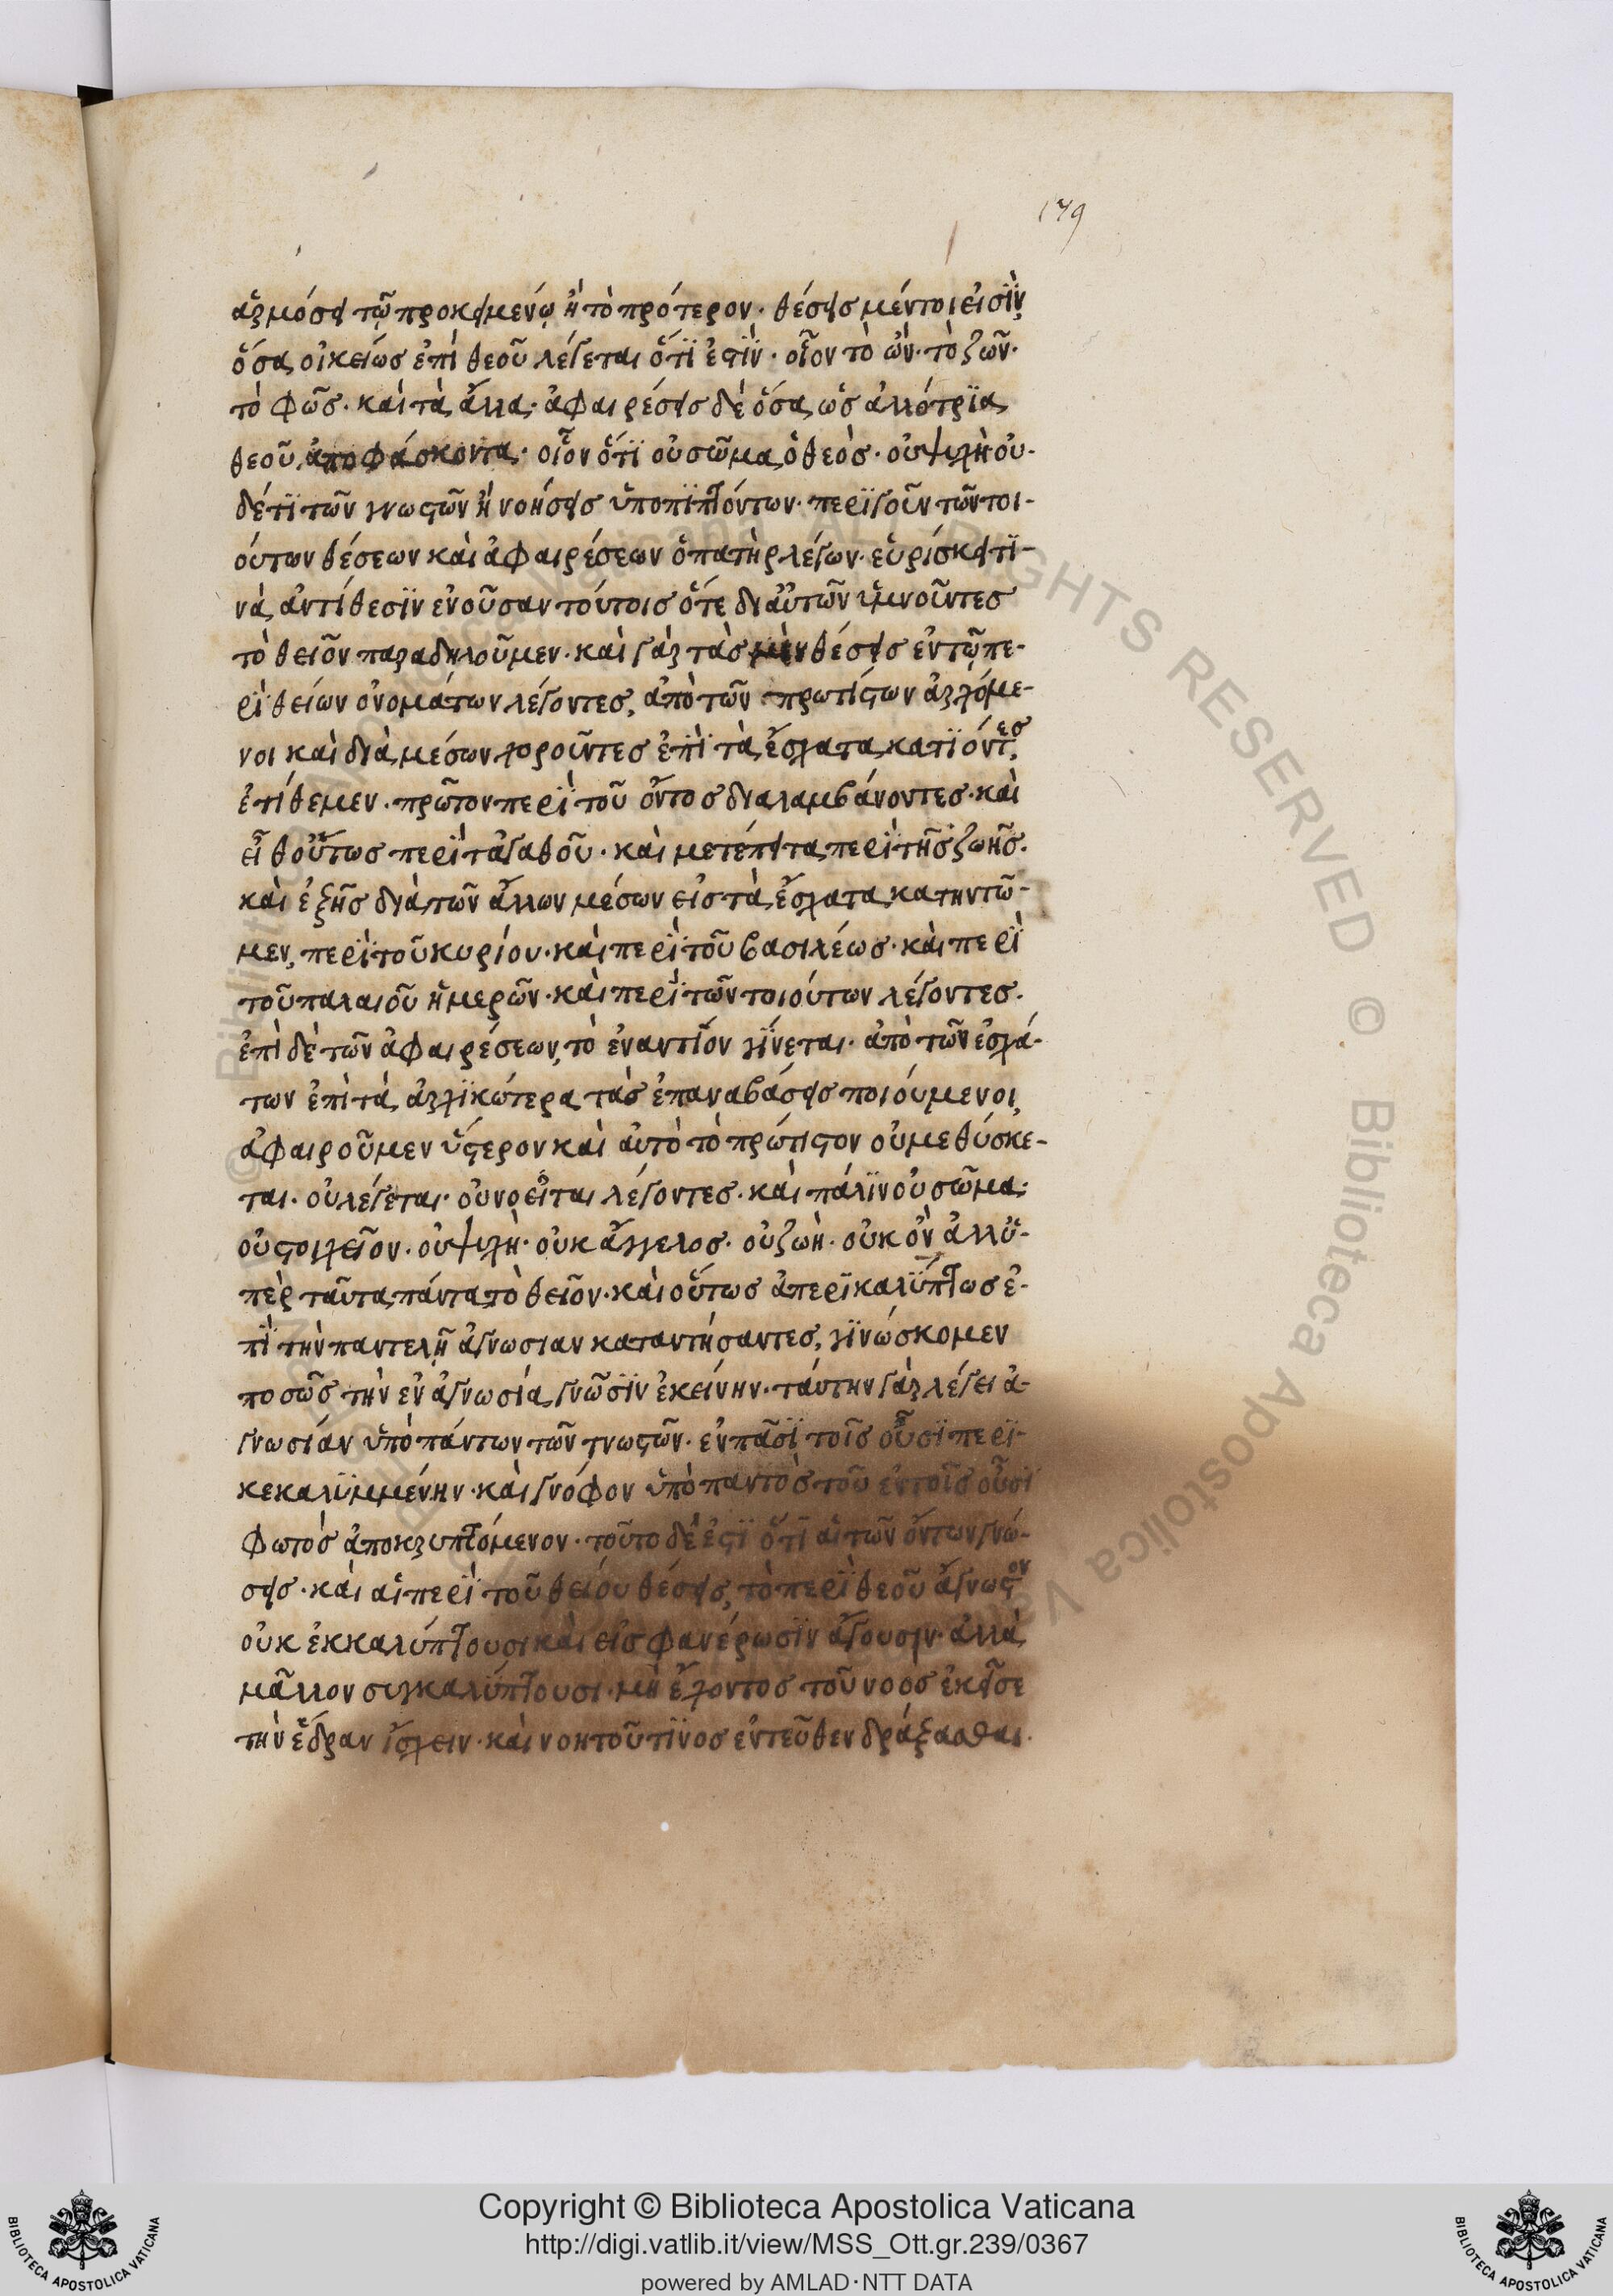 179
ἁρμόσει τῷ προκειμένῳ ἢ τὸ πρότερον· θέσεις μέντοι εἰσὶν,
ὅσα οἰκείως ἐπὶ θεοῦ λέγεται ὅτι ἐστίν· οἷον τὸ ὤν· τὸ ζῶν·
τὸ φῶς· καὶ τὰ ἄλλα· ἀφαιρέσεις δὲ ὅσα ὡς ἀλλότρια
θεοῦ ἀποφάσκονται· οἷον ὅτι οὐ σῶμα ὁ θεὸς· οὐ ψυχὴ οὐ-
δέ τι τῶν γνωστῶν ἢ νοήσεις ὑποπιπτόντων· περὶ γοῦν τῶν τοι-
ούτων θέσεων καὶ ἀφαιρέσεων ὁ πατὴρ λέγων· εὑρίσκει τι-
νὰ ἀντίθεσιν ἐνοῦσαν τούτοις ὅτε δι' αὐτῶν ὑμνοῦντες
τὸ θεῖον παραδηλοῦμεν· καὶ γὰρ τὰς μὲν θέσεις ἐν τῷ πε-
ρὶ θείων ὀνομάτων λέγοντες, ἀπὸ τῶν πρωτίστων ἀρχόμε-
νοι καὶ διὰ μέσων χοροῦντες ἐπὶ τὰ ἔσχατα κατιόντες,
ἐτίθεμεν· πρῶτον περὶ τοῦ ὄντος διαλαμβάνοντες· καὶ
εἶθ' οὕτως περὶ τἀγαθοῦ· καὶ μετέπειτα περὶ τῆς ζωῆς·
καὶ ἑξῆς διὰ τῶν ἄλλων μέσων εἰς τὰ ἔσχατα κατηντῶ-
μεν, περὶ τοῦ κυρίου· καὶ περὶ τοῦ βασιλέως· καὶ περὶ
τοῦ παλαιοῦ ἡμερῶν· καὶ περὶ τῶν τοιούτων λέγοντες·
ἐπὶ δὲ τῶν ἀφαιρέσεων, τὸ ἐναντίον γίνεται· ἀπὸ τῶν ἐσχά-
των ἐπὶ τὰ ἀρχικώτερα τὰς ἐπαναβάσεις ποιούμενοι,
ἀφαιροῦμεν ὕστερον καὶ αὐτὸ τὸ πρώτιστον οὐ μεθύσκε-
ται· οὐ λέγεται· οὐ νοεῖται λέγοντες· καὶ πάλιν οὐ σῶμα·
οὐ στοιχεῖον· οὐ ψυχὴ· οὐκ ἄγγελος· οὐ ζωὴ· οὐκ ὂν ἀλλ' ὑ-
πὲρ ταῦτα πάντα τὸ θεῖον· καὶ οὕτως ἀπερικαλύπτως ἐ-
πὶ τὴν παντελῆ ἀγνωσιαν καταντήσαντες, γινώσκομεν
ποσῶς τὴν ἐν ἀγνωσία γνῶσιν ἐκείνην· ταύτην γὰρ λέγει ἀ-
γνωσίαν ὑπὸ πάντων τῶν γνωστῶν· ἐν πᾶσι τοῖς οὖσι περι-
κεκαλυμμένην· καὶ γνόφον ὑπὸ παντὸς τοῦ ἐν τοῖς οὖσι
φωτὸς ἀποκρυπτόμενον· τοῦτο δέ ἐστι ὅτι αἱ τῶν ὄντων γνώ-
σεις· καὶ αἱ περὶ τοῦ θείου θέσεις, τὸ περὶ θεοῦ ἄγνωστον
οὐκ ἐκκαλύπτουσι καὶ εἰς φανέρωσιν ἄγουσιν· ἀλλὰ
μᾶλλον συγκαλύπτουσι· μὴ ἔχοντος τοῦ νοὸς ἐκεῖσε
τὴν ἕδραν ἴσχειν· καὶ νοητοῦ τινος ἐντεῦθεν δράξασθαι.
Copyright © Biblioteca Apostolica Vaticana
http://digi.vatlib.it/view/MSS_Ott.gr.239/0367
powered by AMLAD·NTT DATA